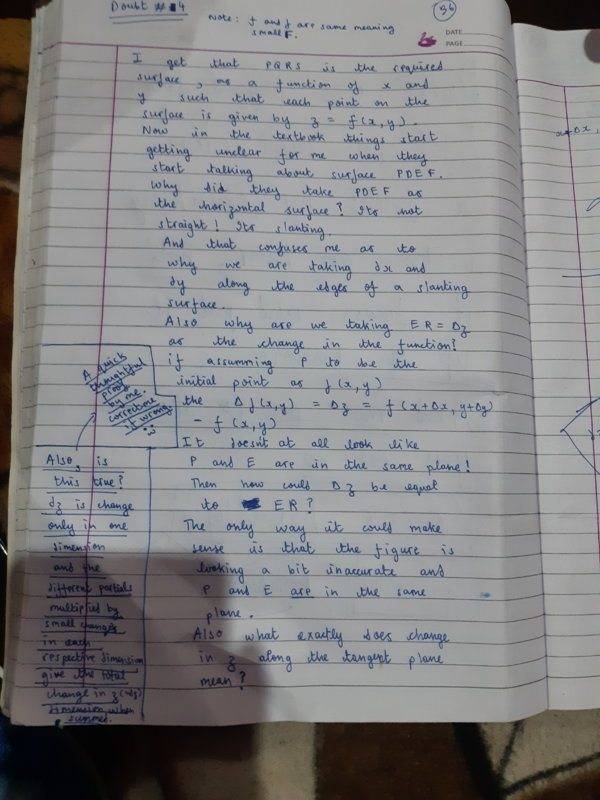 Doubt # 4
Note: f and f are same meaning
small F.
36
DATE
PAGE
I get that PQRS is the required
surface, as a function of x and
y such that each point on the
surface is given by z = f(x,y).
Now in the textbook things start
getting unclear for me when they
start talking about surface PDEF.
Why did they take PDEF as
the horizontal surface? Its not
straight! Its slanting
And that confuses me as to
why we are taking dx and
dy along the edges of a slanting
surface.
Also why are we taking ER = Δz
as the change in the function?
if assumming P to be the
initial point as f(x,y)
the Δf(x,y) = Δz = f(x+Δx, y+Δy)
- f(x,y)
It doesnt at all look like
P and E are in the same plane!
Then how could Δz be equal
to ER?
The only way it could make
sense is that the figure is
looking a bit inaccurate and
P and E are in the same
plane.
Also what exactly does change
in z along the tangent plane
mean?
A quick
thoughtful
proof
by me.
correct me
if wrong
Also, is
this true?
dz is change
only in one
dimension
and the
different partials
multiplied by
small changes
in each
respective dimension
give the total
change in z
dimension when
summed.
x+Δx,